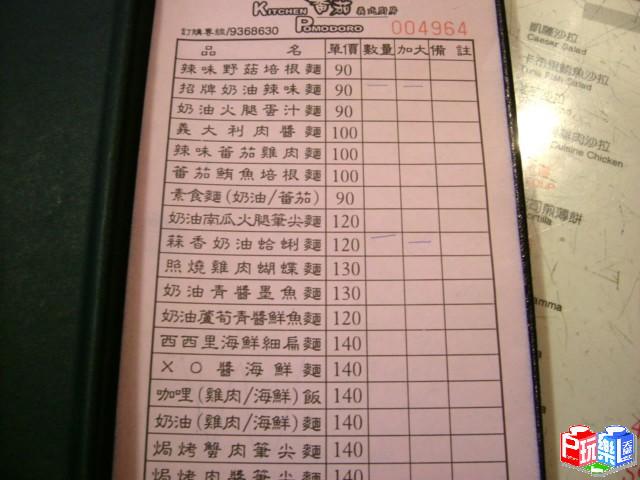 KITCHEN 番茄 義式廚房
POMODORO 004964
訂購專線/9368630
品 名 單價 數量 加大 備註
辣味野菇培根麵 90
招牌奶油辣味麵 90
奶油火腿蛋汁麵 90
義大利肉醬麵 100
辣味蕃茄雞肉麵 100
蕃茄鮪魚培根麵 100
素食麵(奶油/蕃茄) 90
奶油南瓜火腿筆尖麵 120
蒜香奶油蛤蜊麵 120
照燒雞肉蝴蝶麵 130
奶油青醬墨魚麵 130
奶油蘆筍青醬鮮魚麵 120
西西里海鮮細扁麵 140
XO醬海鮮麵 140
咖哩(雞肉/海鮮)飯 140
奶油(雞肉/海鮮)麵 140
焗烤蟹肉筆尖麵 140
焗烤肉醬筆尖麵 140
凱薩沙拉
Caesar Salad
鮪魚沙拉
Tuna Fish Salad
雞肉沙拉
Cuisine Chicken
煎薄餅
玩樂